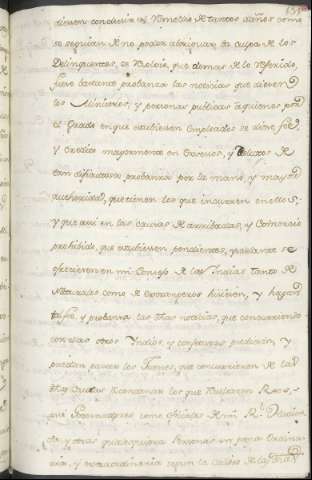 dieren condicia el Remedio de tantos daños como
se seguian de no poder aberiguar la culpa de los
Delinquentes, se Resolvio, que demas de lo Referido,
fuese bastante probanza las noticias que dieren
los Ministros, y personas publicas aquienes por
el Grado en que estubiesen Empleados se deve feé,
y Credito mayormente en Excesos, y Delitos de
tan dificultosa probanza por la mano, y mayor
authoridad, que tienen los que incurren en ellos;
y que assi en las causas de arribadas, y Comercio
prohibido, que estubiesen pendientes, y adelante se
ofrecieren en mi Consejo de las Indias tanto de
Naturales como de Extrangeros hiciesen, y hagan
feé, y probanza las dhas noticias, que concurriendo
con ellas otros Yndicios y conjeturas pudieran, y
puedan parecer los Jueces, que concurrieren de las
dhas Causas Condenar los que Resultaren Reos,
assi Governadores como oficiales de mi Rl Hacienda
y otras qualesquiera Personas en pena ordinaria
y extraordinaria segun la calidad de las